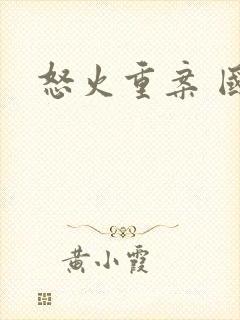 怒火重案 國
黄小霞